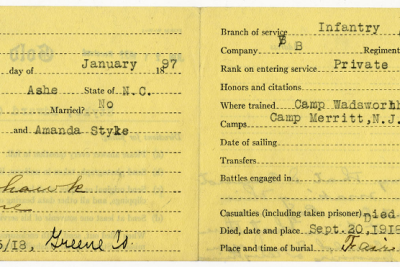 day of January 1897
Ashe State of N.C.
Married? No
and Amanda Styke
5/18, Greene Is.
Branch of service Infantry
Company B Regiment
Rank on entering service Private
Honors and citations
Where trained Camp Wadsworth
Camps Camp Merritt, N.J.
Date of sailing
Transfers
Battles engaged in
Casualties (including taken prisoner) Died
Died, date and place Sept. 20, 1918
Place and time of burial